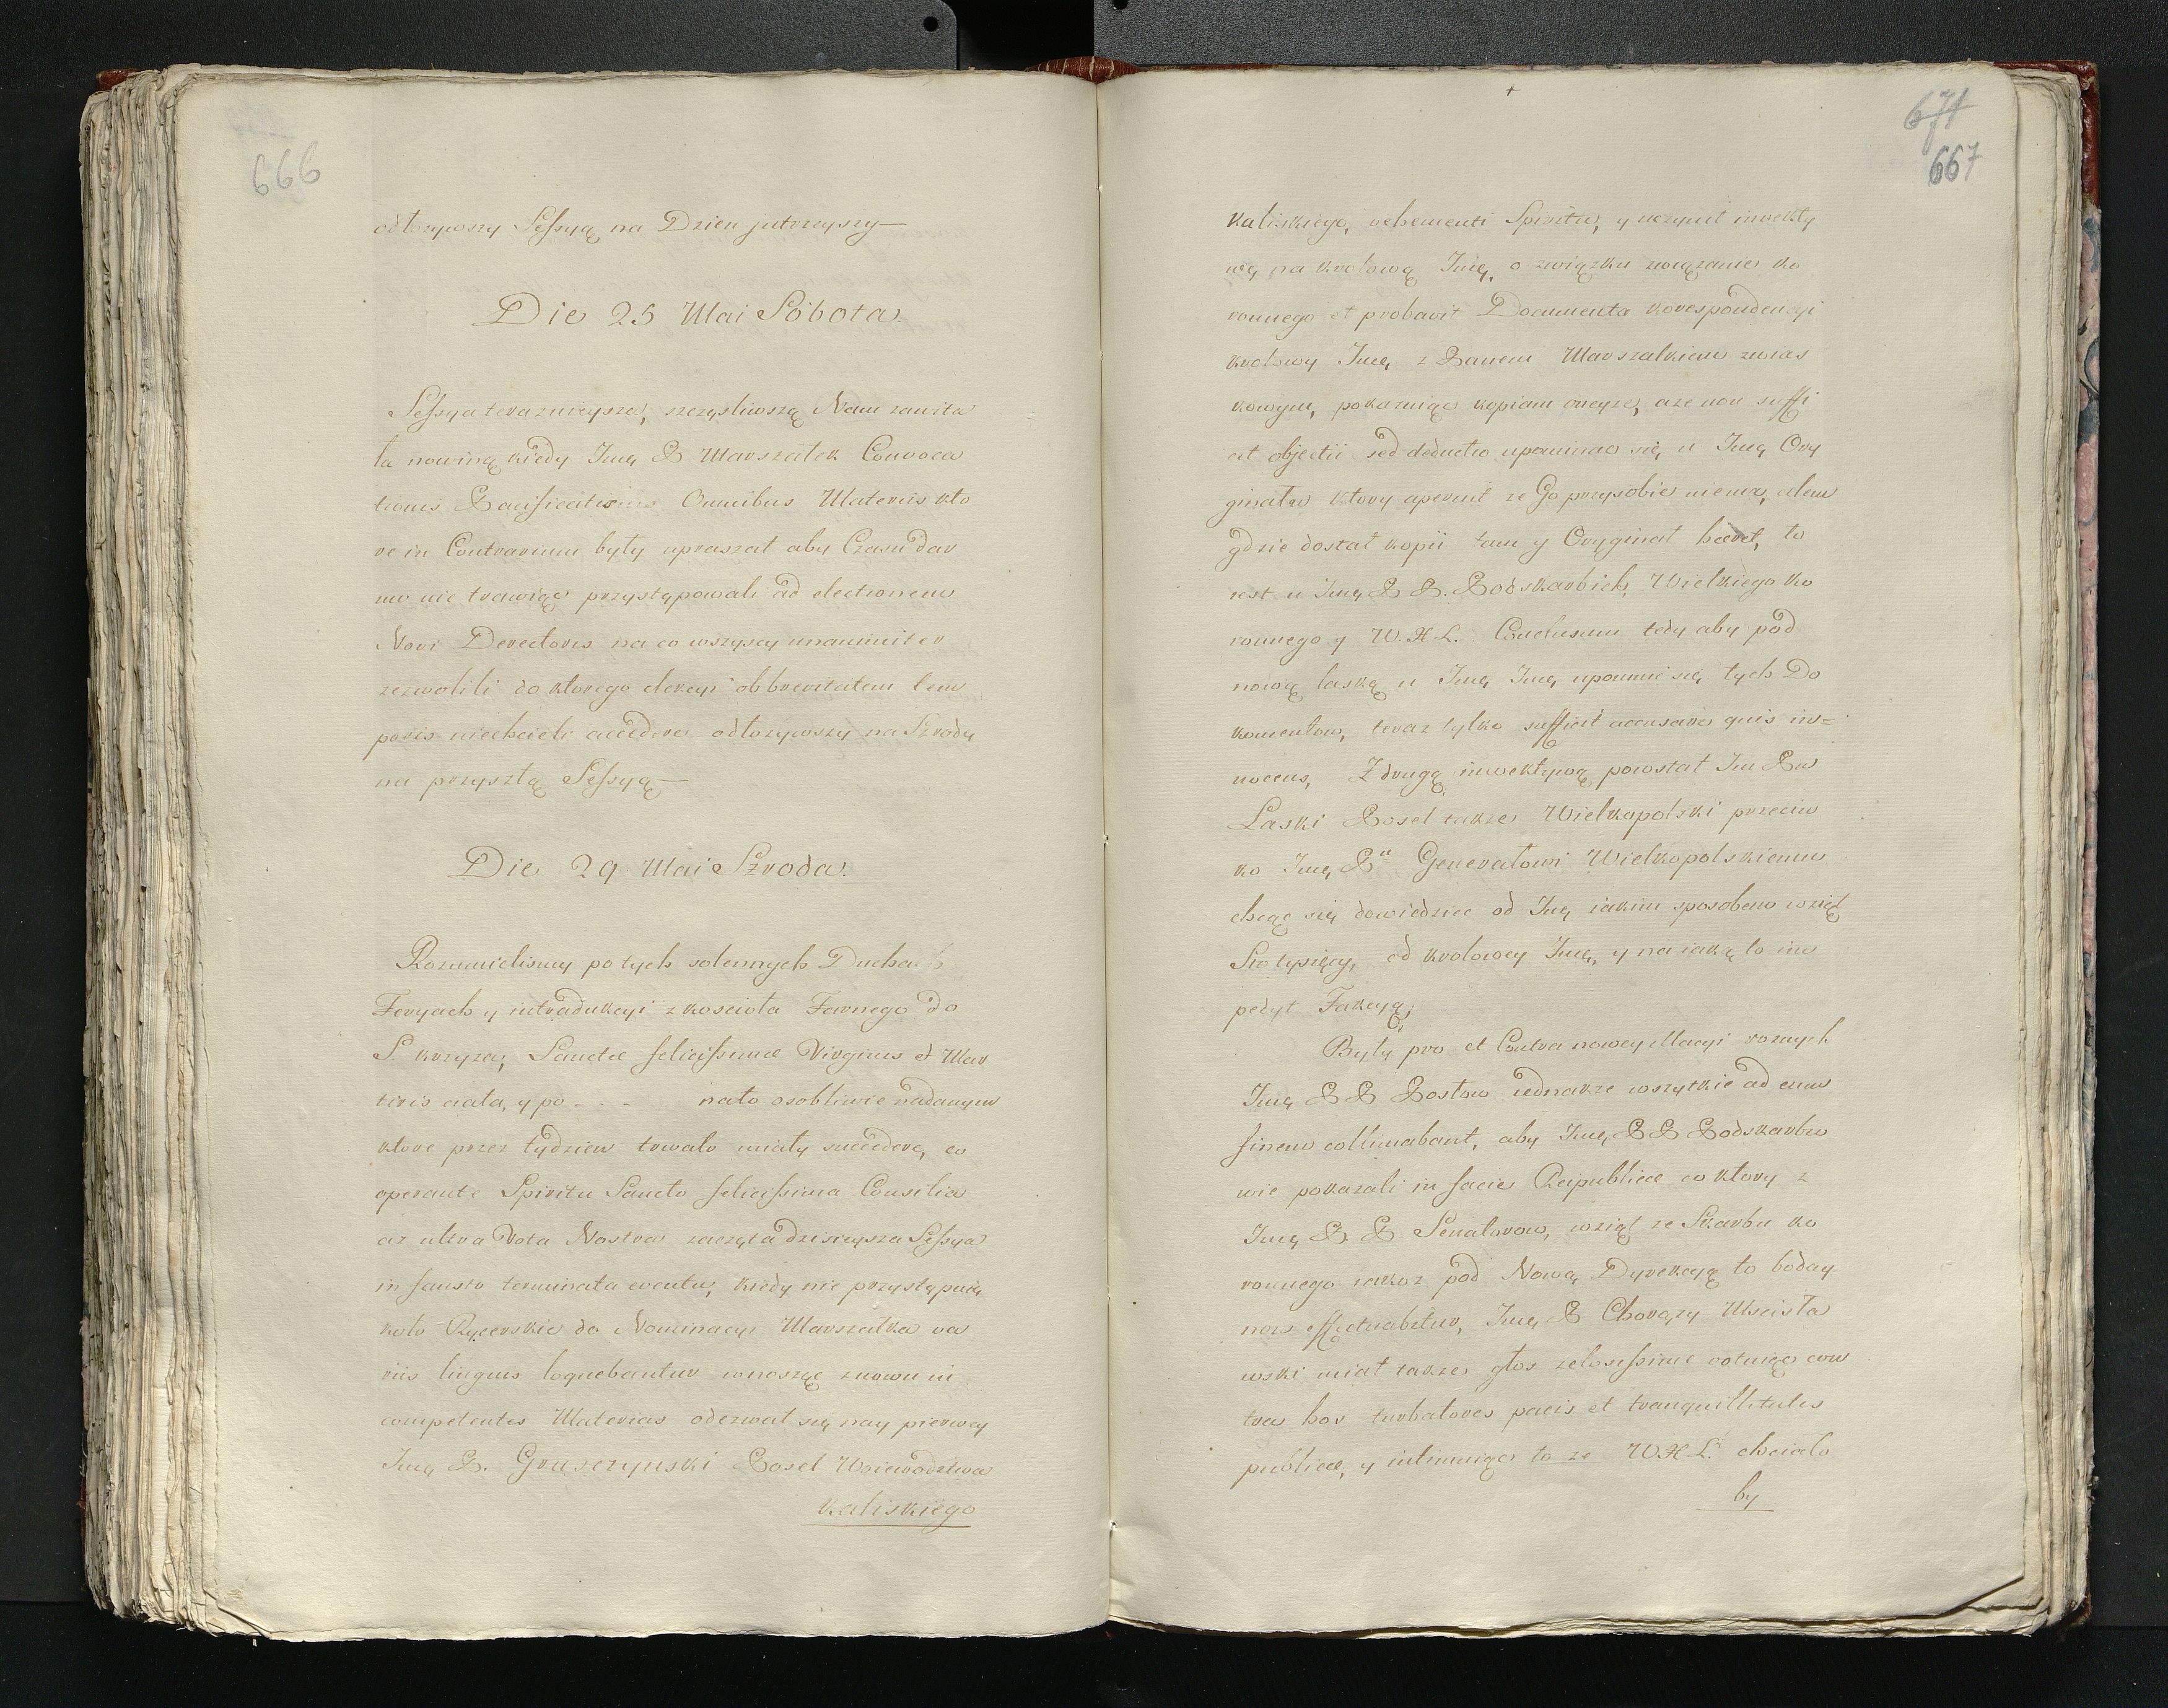 666
odłozywszy Sessyą na Dzien jutrzyszy
Die 25 Mai Sobota.
Sessya teraznieysza, szczęsliwszą Nam zawita
ła nowiną kiedy Jmę P Marszałek Convoca
tionis Pacificatis Omnibus Materiis kto
re in Contrarium były upraszał aby Czasu dar
mo nie trawiąc przystępowali ad electionem
Novi Derectoris na co wszyscy unanimiter
zezwolili do ktorego elekcyi ob brevitatem tem
poris niechcieli accedere odłozywszy na Szrodę
na przyszłą Sessyą
Die 29 Mai Szroda.
Rozumielismy po tych solennych Ducha
Feryach y intradukcyi z koscioła Farnego do
S. krzyza, Sanctæ felicissimæ Virginis et Mar
tiris ciała, y po - - - nato osobliwie nadanym
ktore przez tydzien trwało miały succedere, co
operante Spiritu Sancto felicissima Consilia
az ultra Vota Nostra zaczęta dzisieysza Sessya
in fausto terminata eventu, kiedy nie przystępuią
koło Rycerskie do Nominacyi Marszałka va
riis linguis loquebantur wnosząc znowu in
competentes Materias odezwał się nay pierwey
Jmę P. Gruszczynski Poseł Woiewodztwa
Kaliskiego
671
667
Kaliskiego, vehementi Spiritu, y uczynił inwekty
wę na krolową Jmę, o związku związanie ko
ronnego et probavit Documenta korespondencyi
krolowy Jmę z Panem Marszałkiem zwias
kowym, pokazuiąc kopiam oneyze, aze non suffi
cit objectii sed deductio upominao się u Jmę Ory
ginału ktory aperuit ze Go przysobie niema, alem
gdzie dostał kopii tam y Oryginał hæret, to
iest u Jmę P P. Podskarbich Wielkiego ko
ronnego y W. X L. Conclusum tedy aby pod
nową laską u Jmę Jmę upomnie się tych Do
kumentow, teraz tylko sufficit accusare quis in=
nocens, Z drugą inwektywą powstał Im Pn
Łaski Poseł takze Wielkopolski przeciw
ko Jmę Pu Generałowi Wielkopolskiemu
chcąc się dowiedziec od Jmę iakim sposobem wziął
Sto tysięcy, od krolowey Jmę, y na iaką to im
pedyt Fakcyą,
Były pro et Contra nowey ellacyi roznych
Jmę P P Posłow iednakze wszytkie ad eum
finem collimabant, aby Jmę P P Podskarbio
wie pokazali in facie Reipublicæ co ktory z
Jmę P. P Senatorow, wziął ze Skarbu ko
ronnego iakoz pod Nową Dyrekcyą to boday
non effectuabitur, Jmę P Chorązy Mscisła
wski miał takze głos zelosissime votuiąc con
tra hos turbatores pacis et tranquillitatis
publicæ, y intimuiąc to ze W. X L. chciało
by